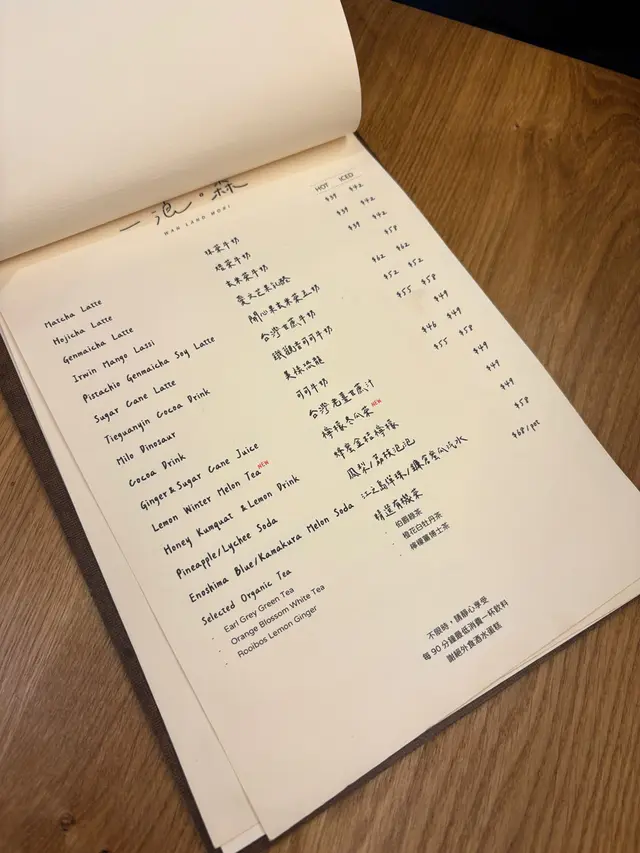 一泡。森
HAN LAND MORI
HOT ICED
Matcha Latte 抹茶牛奶 $39 $42
Hojicha Latte 焙茶牛奶 $39 $42
Genmaicha Latte 玄米茶牛奶 $39 $42
Irwin Mango Lassi 愛文芒果奶酪 $58
Pistachio Genmaicha Soy Latte 開心果玄米茶豆奶 $62 $62
Sugar Cane Latte 台灣甘蔗牛奶 $52 $52
Tieguanyin Cocoa Drink 鐵觀音可可牛奶 $55 $58
Milo Dinosaur 美祿恐龍 $49
Cocoa Drink 可可牛奶 $46 $49
Ginger & Sugar Cane Juice 台灣老薑甘蔗汁 $55 $58
Lemon Winter Melon Tea NEW 檸檬冬瓜茶 NEW $49
Honey Kumquat & Lemon Drink 蜂蜜金桔檸檬 $49
Pineapple/Lychee Soda 鳳梨/荔枝泡泡 $49
Enoshima Blue/Kamakura Melon Soda 江之島/鎌倉蜜瓜汽水 $58
Selected Organic Tea 精選有機茶 $68/pot
· Earl Grey Green Tea · 伯爵綠茶
· Orange Blossom White Tea · 橙花白牡丹茶
· Rooibos Lemon Ginger · 檸檬薑博士茶
不限時，請靜心享受
每90分鐘最低消費一杯飲料
謝絕外食酒水蛋糕